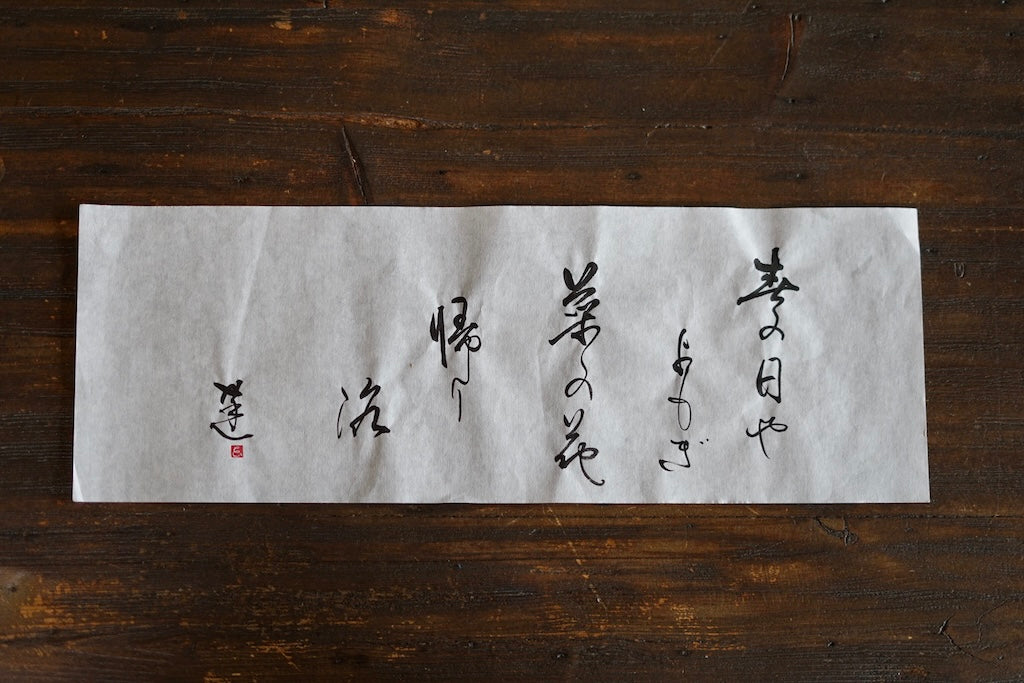 春の日や
よもぎ
菜の花
帰り
洛
蓬